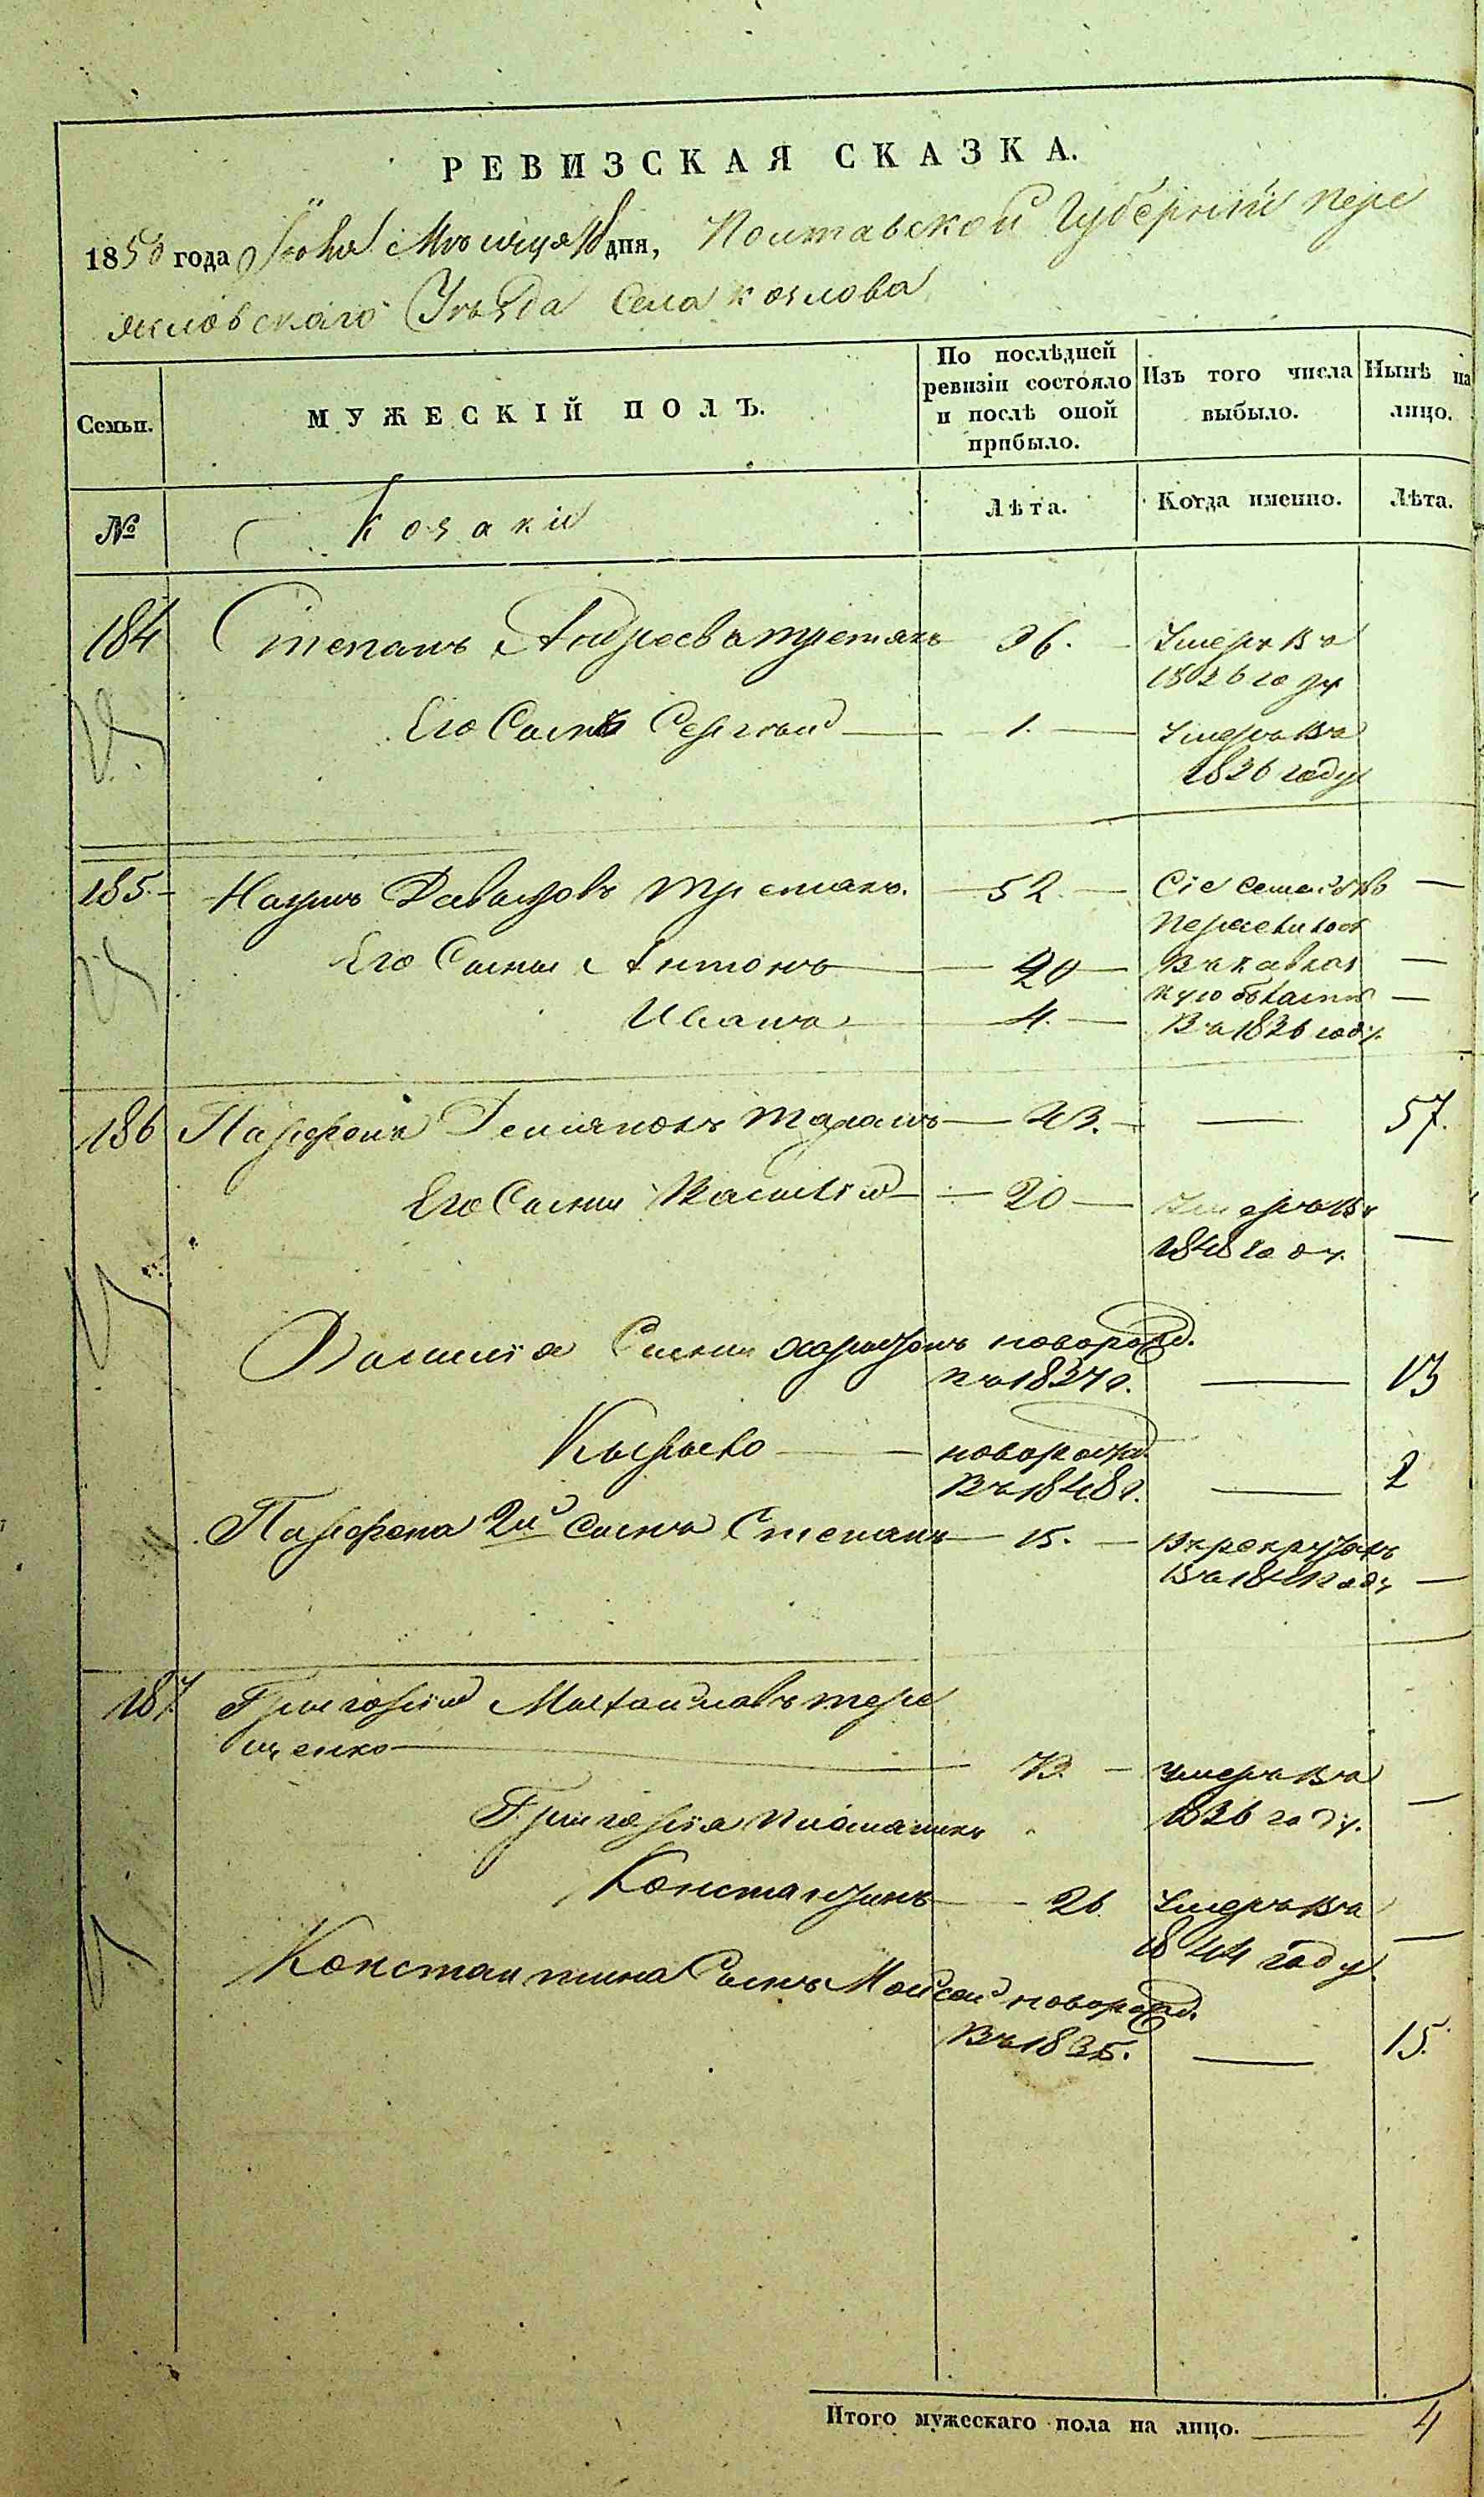 РЕВИЗСКАЯ СКАЗКА.
1850 года Мѣсяца дня, Полтавской Губерніи Пере
яславскаго Уѣзда Села Козлова
Семьи.
МУЖЕСКІЙ ПОЛЪ.
По послѣдней ревизіи состояло и послѣ оной прибыло.
Изъ того числа выбыло.
Нынѣ на лицо.
№
Козаки
Лѣта.
Когда именно.
Лѣта.
184 Степанъ Андреевъ третякъ 36. Умеръ въ
1836 году
Его Сынъ Сергѣй 1. Умеръ въ
1836 году
185. Наумъ Давыдовъ третякъ. 52 Сіе семейство
переселилось
Его Сыны Антонъ 20 въ кавказ
скую область
Иванъ 4. въ 1836 году.
186 Парфенъ Таранъ 43. 57.
Его Сыны Василій 20 Умеръ въ
1848 году.
Василія Сыны Харитонъ новорожд.
въ 1837 г. 13
Кырыло новорожд.
въ 1848 г. 2
Парфена 2й сынъ Степанъ 15. въ рекрутахъ
въ году
187. Григорій Михайловъ тере
щенко 73. умеръ въ
1836 году.
Григорія племяникъ
Константинъ 26 Умеръ въ
1844 году.
Константина Сынъ Мойсей новорожд.
въ 1835. 15.
Итого мужескаго пола на лицо. 4